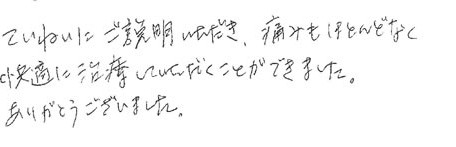 ていねいにご説明いただき、痛みもほとんどなく
快適に治療していただくことができました。
ありがとうございました。